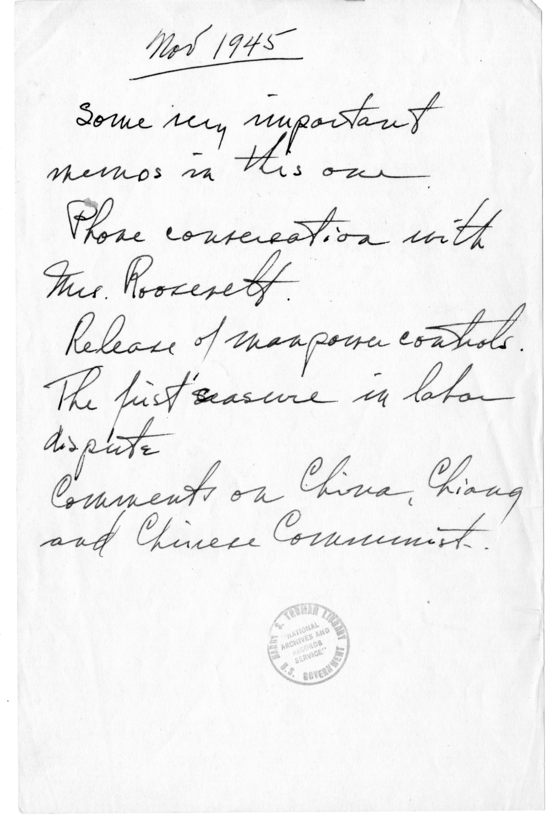 Nov 1945
Some very important
memos in this one
Phone conversation with
Mrs. Roosevelt.
Release of manpower controls.
The first seasure in labor
dispute
Comments on China, Chiang
and Chinese Communist.
HARRY S. TRUMAN LIBRARY
"NATIONAL
ARCHIVES AND
RECORDS
SERVICE"
U.S. GOVERNMENT